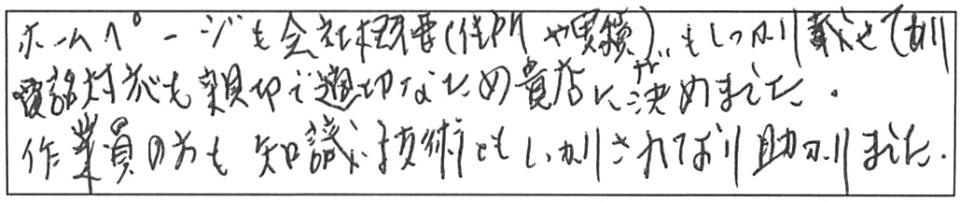 ホームページも会社概要(住所や実績)もしっかり載せており
電話対応も親切で適切なため貴店に決めました。
作業員の方も知識、技術ともしっかりされており助かりました。